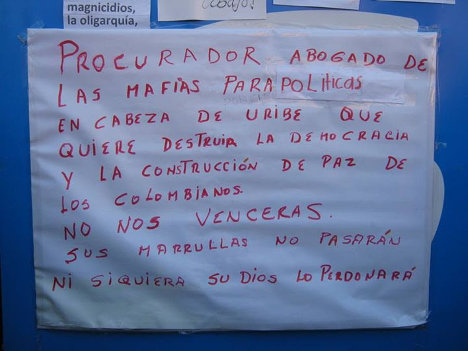 magnicidios,
la oligarquía,
abajos
PROCURADOR ABOGADO DE
LAS MAFIAS PARAPOLITICAS
EN CABEZA DE URIBE QUE
QUIERE DESTRUIR LA DEMOCRACIA
Y LA CONSTRUCCIÓN DE PAZ DE
LOS COLOMBIANOS.
NO NOS VENCERAS.
SUS MARRULLAS NO PASARÁN
NI SIQUIERA SU DIOS LO PERDONARÁ